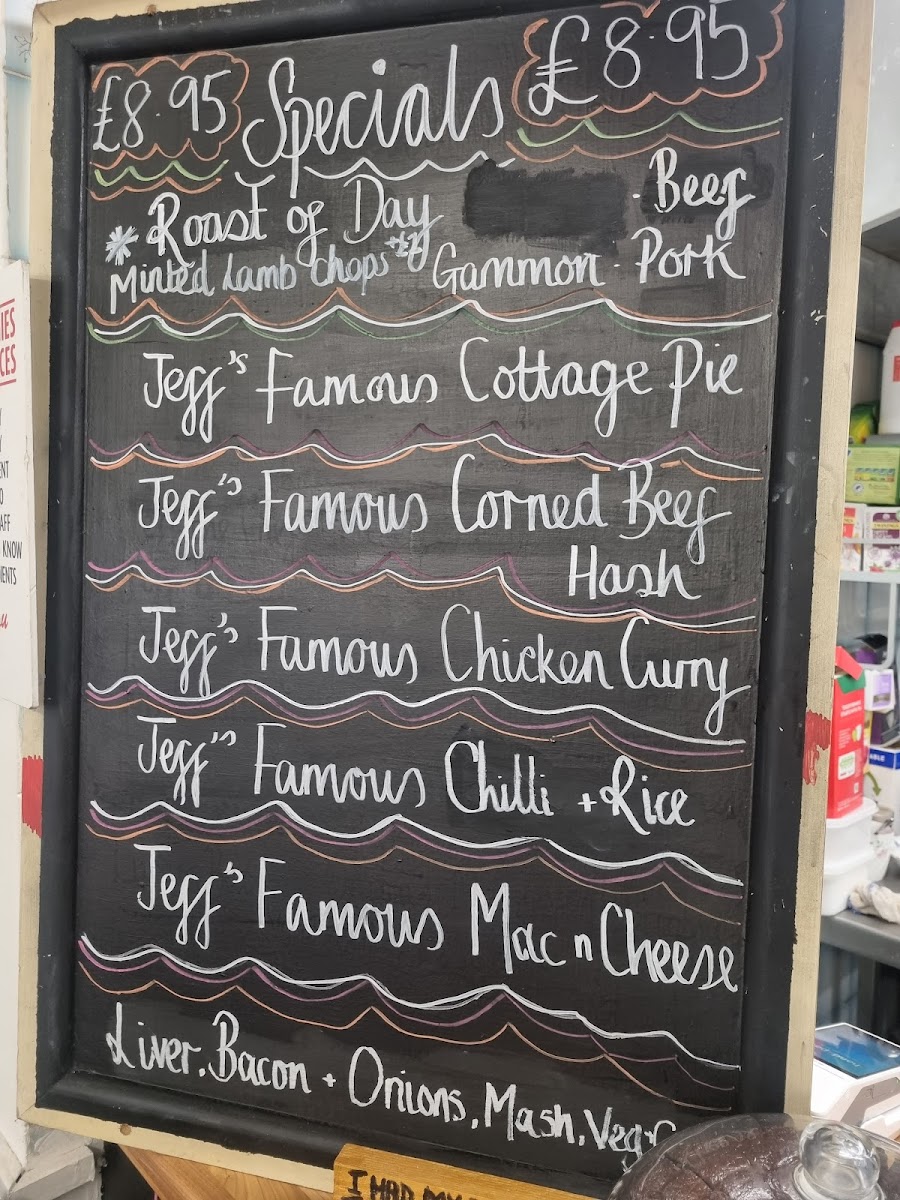 £8.95 Specials £8.95
* Roast of Day . Beef
Minted Lamb Chops +£2 Gammon . Pork
Jeff's Famous Cottage Pie
Jeff's Famous Corned Beef
Hash
Jeff's Famous Chicken Curry
Jeff's Famous Chilli + Rice
Jeff's Famous Mac n Cheese
Liver, Bacon + Onions, Mash, Veg
I HAD MY
IES
CES
ENT
AFF
KNOW